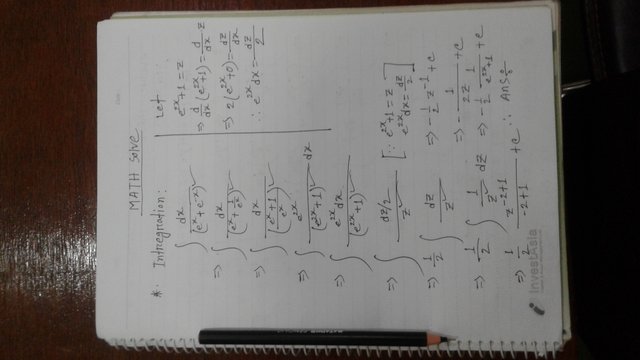 MATH Solve
*. Intregration:
∫ dx/(e^x+e^-x)²
⇒ ∫ dx/(e^x+1/e^x)²
⇒ ∫ dx/((e^2x+1)/e^x)²
⇒ ∫ e^2x/(e^2x+1)² dx
⇒ ∫ e^2x dx/(e^2x+1)²
⇒ ∫ dz/2/z² [∵ e^2x+1=z e^2x dx=dz/2]
⇒ 1/2 ∫ dz/z²
⇒ 1/2 ∫ 1/z² dz
⇒ 1/2 z^-2+1/-2+1 +c
Let
e^2x+1=z
⇒ d/dx(e^2x+1)=d/dx z
⇒ 2(e^2x+0)=dz/dx
∴ e^2x dx=dz/2
⇒ -1/2 z^-1+c
⇒ -1/2z +c
⇒ -1/2 1/e^2x+1 +c
∴ Ans:
i InvestAsia